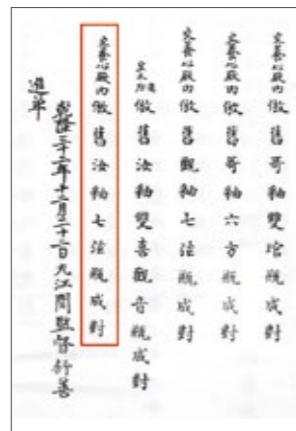 交養心殿內倣舊哥釉雙琯瓶成對
交養心殿內倣舊哥釉六方瓶成對
交養心殿內倣舊觀釉七弦瓶成對
倣舊汝釉雙喜觀音瓶成對
交養心殿內倣舊汝釉七弦瓶成對
乾隆三十二年十二月二十二日九江關監督舒善
進單